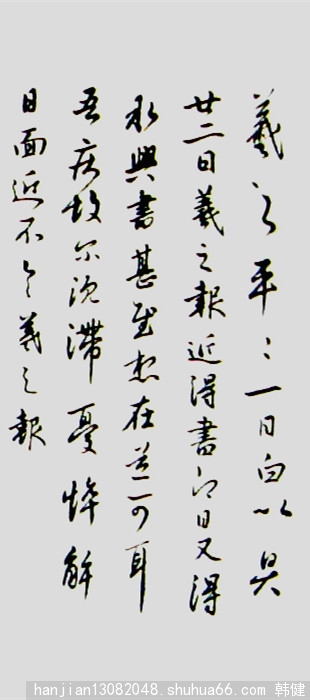 羲之平ミ一日白以具
廿二日羲之報近得書即日又得
永興書甚慰想在道可耳
吾疾故尔沉滯憂悴解
日面近不具羲之報
hanjian13082048.shuhua66.com 韩健